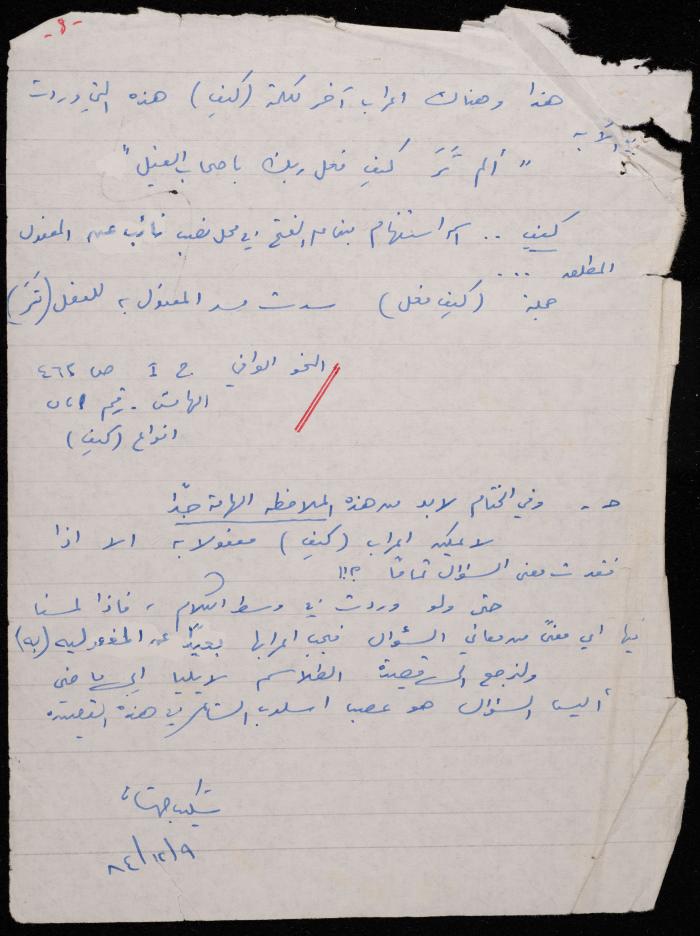 - ٤ -
هذا وهناك اعراب آخر لكلمة (كيف) هذه التي وردت
في الآية
" ألم تَرَ كيف فعل ربك بأصحاب الفيل "
كيف .. اسم استفهام مبني على الفتح في محل نصب نائب عن المفعول
المطلق ...
جملة (كيف فعل) سدت مسد المفعول به للفعل (تَرَ)
النحو الوافي ج I ص ٤٦٢
الهامش . رقم
انواع (كيف)
ح - وفي الختام لابد من هذه الملاحظة الهامة جدّاً
لا يمكن اعراب (كيف) مفعولا به الا اذا
فقدت معنى السؤال تماماً ؟!!
حتى ولو وردت في وسط الكلام ، فاذا لمسنا
فيها اي معنىً من معاني السؤال فيجب اعرابها بعيداً عن المفعولية (به)
ولنرجع الى قصيدة الطلاسم لايليا ابي ماضي
أليس السؤال هو عصب اسلوب الشاعر في هذه القصيدة
شكيب
٨٤/١٢/٩